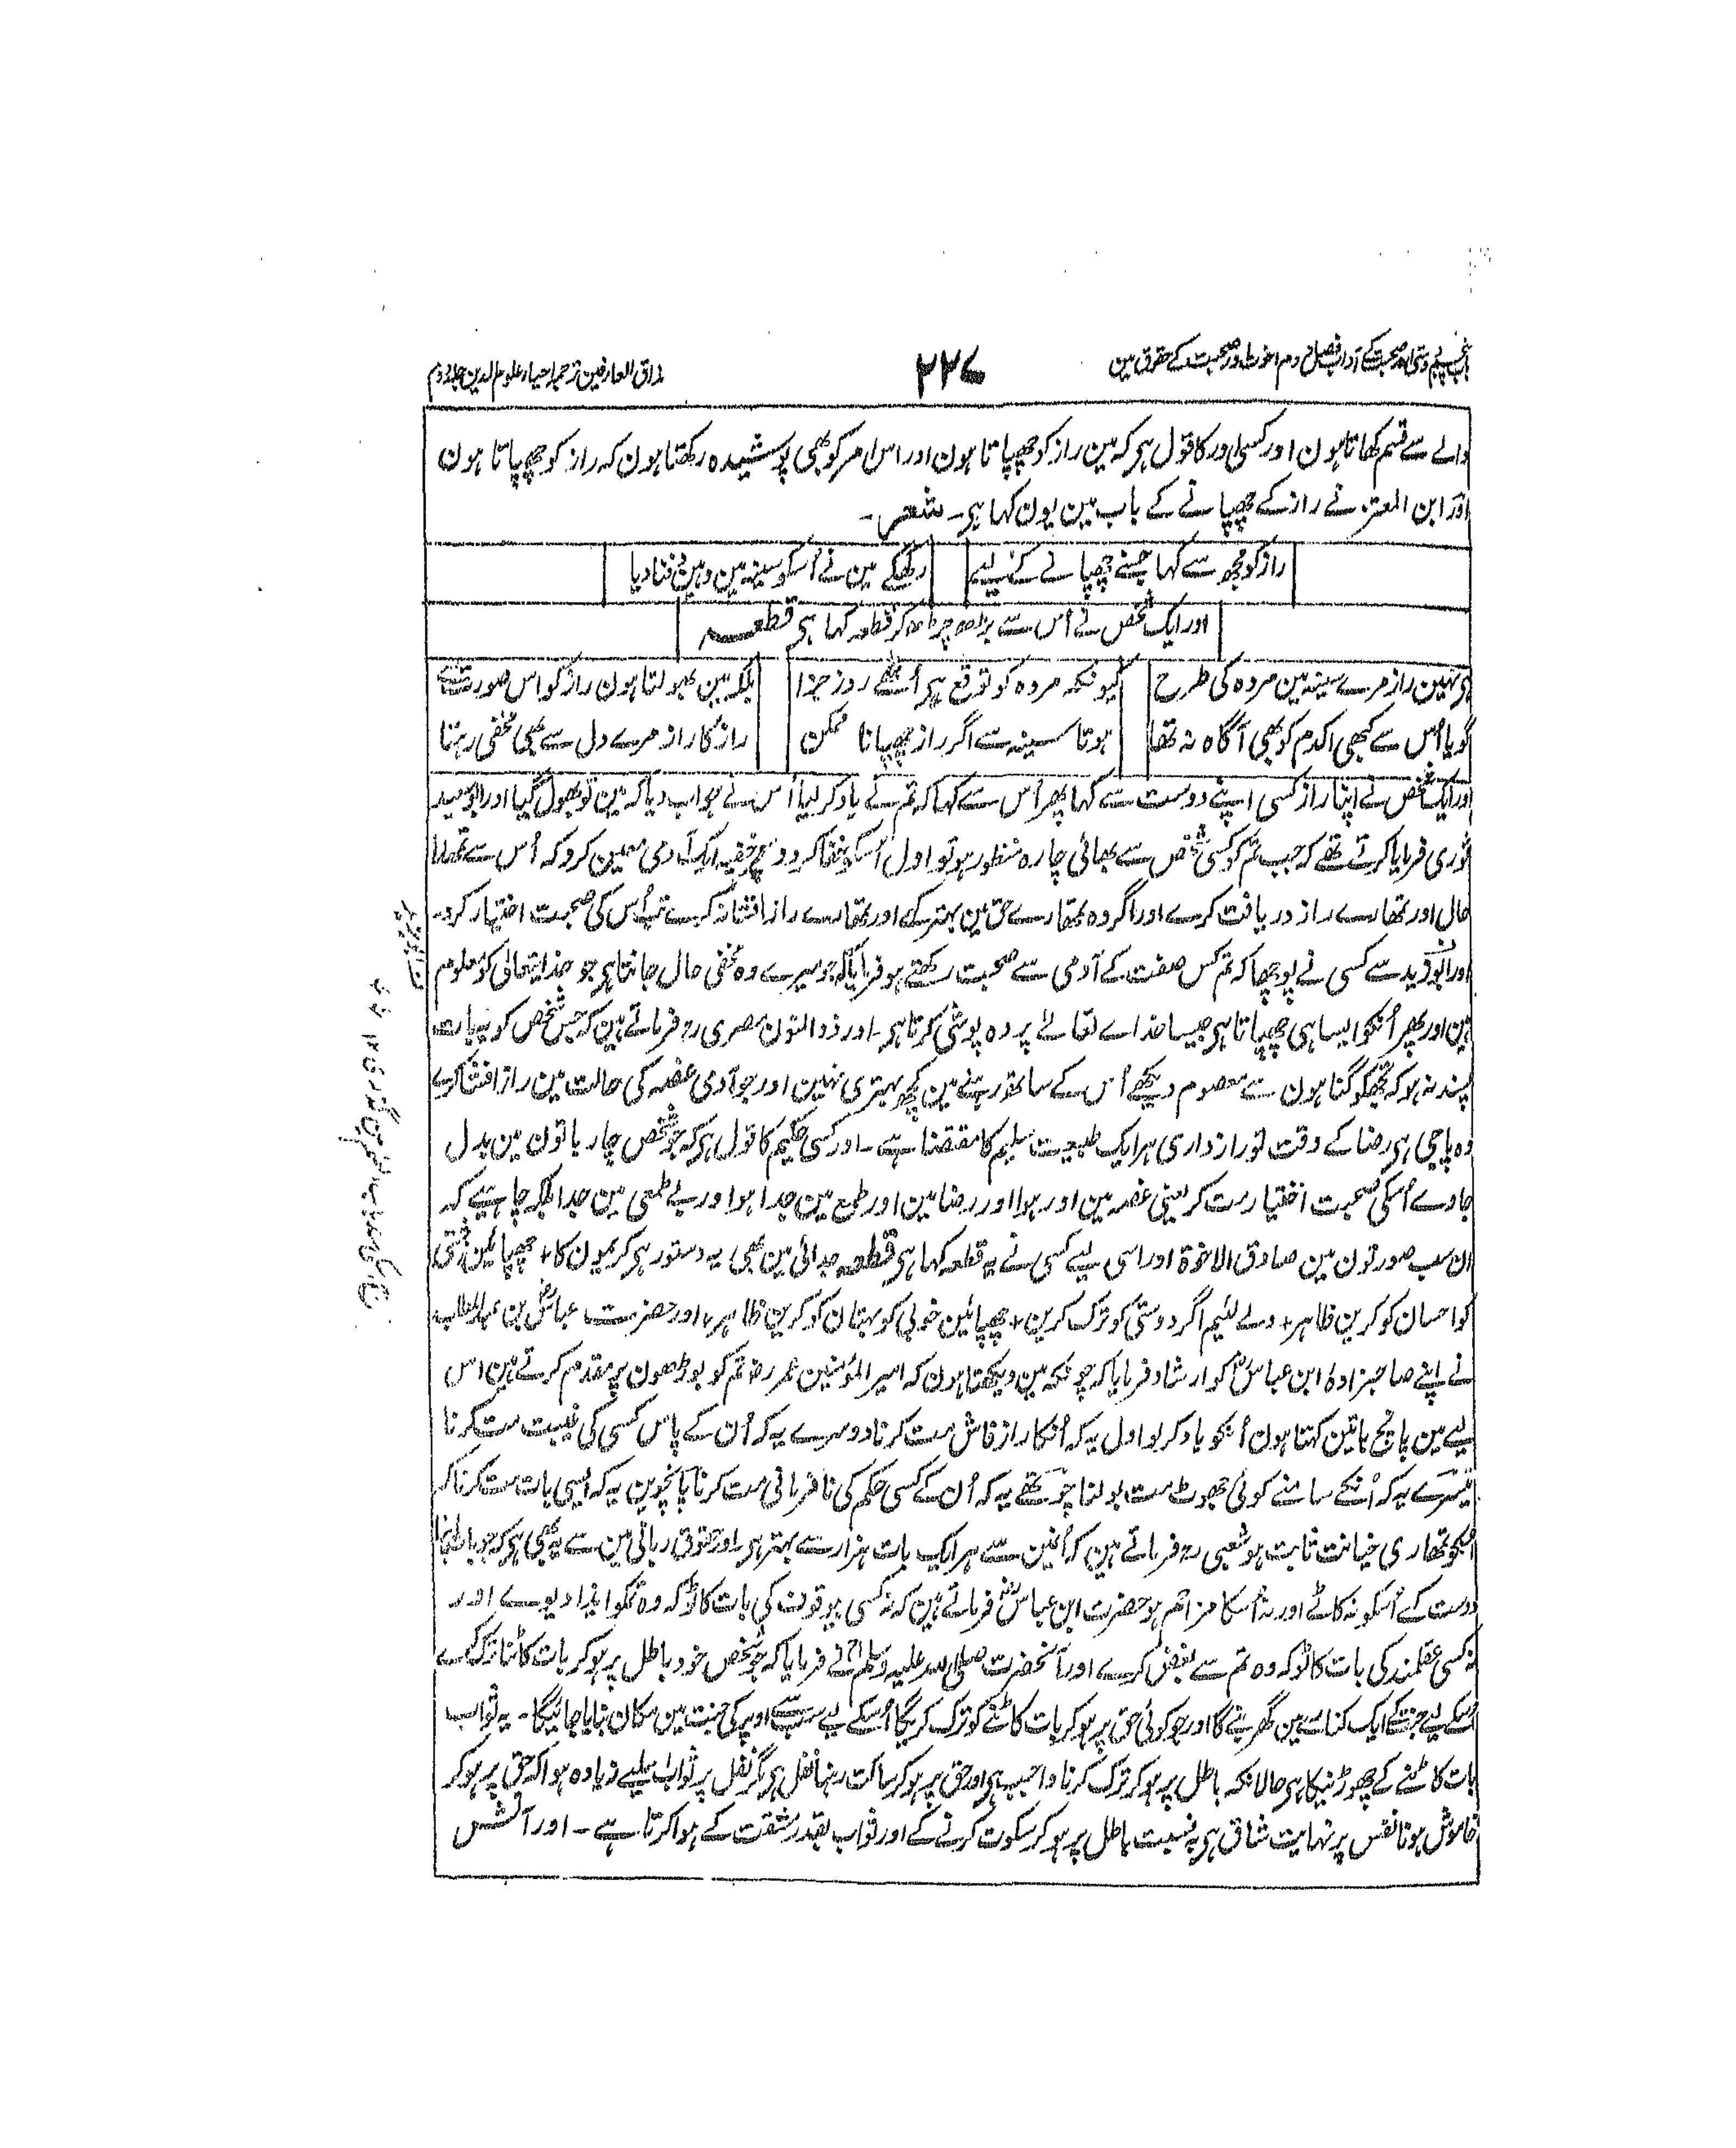 باب پنجم دوستی اور صحبت کے آداب فصل دوم اخوت اور صحبت کے حقوق مین
۲۲۷
مذاق العارفین ترجمہ احیاء علوم الدین جلد دوم
والے سے قسم کھاتا ہون اور کسی اور کا قول ہی کہ مین راز کو چھپاتا ہون اور اس امر کو بھی پوشیدہ رکھتا ہون کہ راز کو چھپاتا ہون
اور ابن المعتز نے راز کے چھپانے کے باب مین یون کہا ہی۔ شعر۔
راز کو مجھ سے کہا جسنے چھپانے کے لیے
رکھکے مین نے اُسکو سینہ مین وہین دفنا دیا
اور ایک شخص نے اُس سے بڑھ چڑھ کر قطعہ کہا ہی قطعہ
ہی نہین راز مرے سینہ مین مردہ کی طرح
کیونکہ مردہ کو توقع ہی اُٹھے روز جزا
بلکہ مین بھولتا ہون راز کو اس صورت سے
گویا اُس سے کبھی اکدم کو بھی آگاہ نہ تھا
ہوتا سینہ سے اگر راز چھپانا ممکن
راز کا راز مرے دل سے بھی مخفی رہتا
اور ایک شخص نے اپنا راز کسی اپنے دوست سے کہا پھر اُس سے کہا کہ تم نے یاد کر لیا اُس نے جواب دیا کہ مین تو بھول گیا اور ابو سعید
ثوری فرمایا کرتے تھے کہ جب تم کو کسی شخص سے بھائی چارہ منظور ہو تو اول اُسکو خفا کر دو پھر خفیہ ایک آدمی معین کرو کہ اُس سے تمھارا
حال اور تمھارے راز دریافت کرے اور اگر وہ تمھارے حق مین بہتر کہے اور تمھارے راز افشا نہ کرے تب اُس کی صحبت اختیار کرو۔
اور ابو زید سے کسی نے پوچھا کہ تم کس صفت کے آدمی سے صحبت رکھتے ہو فرمایا کہ جو میرے وہ مخفی حال جانتا ہی جو خدا تعالی کو معلوم
ہین اور پھر اُنکو ایسا ہی چھپاتا ہی جیسا خداے تعالے پردہ پوشی کرتا ہی۔ اور ذو النون مصری رہ فرماتے ہین کہ جس شخص کو یہ بات
پسند نہ ہو کہ تجھکو گناہون سے معصوم دیکھے اُس کے ساتھ رہنے مین کچھ بہتری نہین اور جو آدمی غصہ کی حالت مین راز افشا کرے
وہ پاجی ہی رضا کے وقت تو رازداری ہر ایک طبیعت سلیم کا مقتضا ہے۔ اور کسی حکیم کا قول ہی کہ جو شخص چار باتون مین بدل
جاوے اُسکی صحبت اختیار مت کر یعنی غصہ مین اور ہوا اور رضا مین اور طمع مین جدا ہو اور بے طمعی مین جدا بلکہ چاہیے کہ
ان سب صورتون مین صادق الاخوۃ اور اسی لیے کسی نے یہ قطعہ کہا ہی قطعہ جدائی مین بھی یہ دستور ہی کریمون کا + چھپائین زشتی
کو احسان کو کرین ظاہر + ولے لئیم اگر دوستی کو ترک کرین + چھپائین خوبی کو بہتان کو کرین ظاہر، اور حضرت عباسؓ بن عبدالمطلب
نے اپنے صاحبزادہ ابن عباسؓ کو ارشاد فرمایا کہ چونکہ مین دیکھتا ہون کہ امیر المؤمنین عمر رضؓ تم کو بوڑھون پر مقدم کرتے ہین اس
لیے مین پانچ باتین کہتا ہون اُنکو یاد کر لو اول یہ کہ اُنکا راز فاش مت کرنا دوسرے یہ کہ اُن کے پاس کسی کی غیبت مت کرنا
تیسرے یہ کہ اُنکے سامنے کوئی جھوٹ مت بولنا چوتھے یہ کہ اُن کے کسی حکم کی نافرمانی مت کرنا پانچوین یہ کہ ایسی بات مت کرنا کہ
اُنکو تمھاری خیانت ثابت ہو شعبی رہ فرماتے ہین کہ اُنمین سے ہر ایک بات ہزار سے بہتر ہی اور حقوق زبانی مین سے یہ بھی ہی کہ جو بات اپنا
دوست کہے اُسکو نہ کاٹے اور نہ اُسکا مزاحم ہو حضرت ابن عباسؓ فرماتے ہین کہ نہ کسی بیوقوف کی بات کاٹو کہ وہ تمکو ایذا دیوے اور
نہ کسی عقلمند کی بات کاٹو کہ وہ تم سے بغض کرے اور آنحضرت صلی اللہ علیہ وسلم نے فرمایا کہ جو شخص خود باطل پر ہو کر بات کاٹنا ترک کرے
اُسکے لیے جنت کے ایک کنارے مین گھر بنے گا اور جو کوئی حق پر ہو کر بات کاٹنے کو ترک کریگا اُسکے لیے سب سے اوپر کی جنت مین مکان بنایا جائیگا۔ یہ ثواب
بات کاٹنے کے چھوڑنیکا ہی حالانکہ باطل پر ہو کر ترک کرنا واجب ہی اور حق پر ہو کر ساکت رہنا نفل ہی مگر نفل پر ثواب اسلیے زیادہ ہوا کہ حق پر ہو کر
خاموش ہونا نفس پر نہایت شاق ہی بہ نسبت باطل پر ہو کر سکوت کرنے کے اور ثواب بقدر مشقت کے ہوا کرتا ہے۔ اور آتش